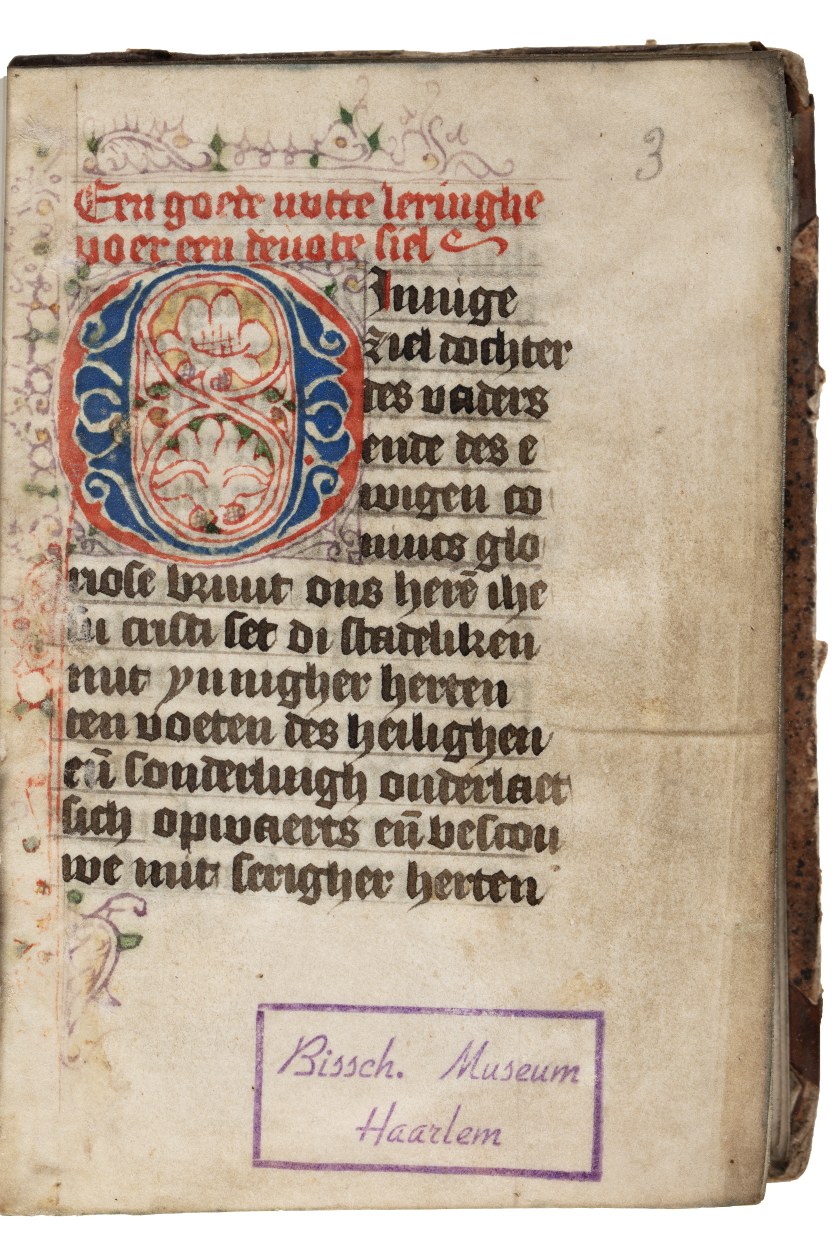 3
Een goede nutte leringhe
voer een deuote siel
O Innige
ziel dochter
des vaders
ende des e
wigen co
nincs glo
riose bruut ons herē ihe
su cristi set di stadeliken
mit ynnigher herten
ten voeten des heilighen
eñ sonderlingh onderlaet
sich opwaerts eñ bescou
we mit serigher herten
Bissch. Museum
Haarlem